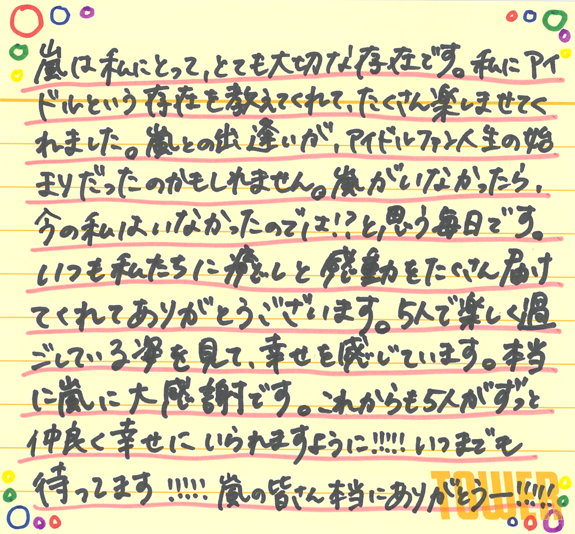 嵐は私にとって、とても大切な存在です。私にアイ
ドルという存在も教えてくれて、たくさん楽しませてく
れました。嵐との出逢いが、アイドルファン人生の始
まりだったのかもしれません。嵐がいなかったら、
今の私はいなかったのでは!?と思う毎日です。
いつも私たちに癒しと感動をたくさん届け
てくれてありがとうございます。5人で楽しく過
ごしている姿を見て、幸せを感じています。本当
に嵐に大感謝です。これからも5人がずっと
仲良く幸せにいられますように!!!!! いつまでも
待ってます!!!!! 嵐の皆さん本当にありがとうー!!!!!
TOWER